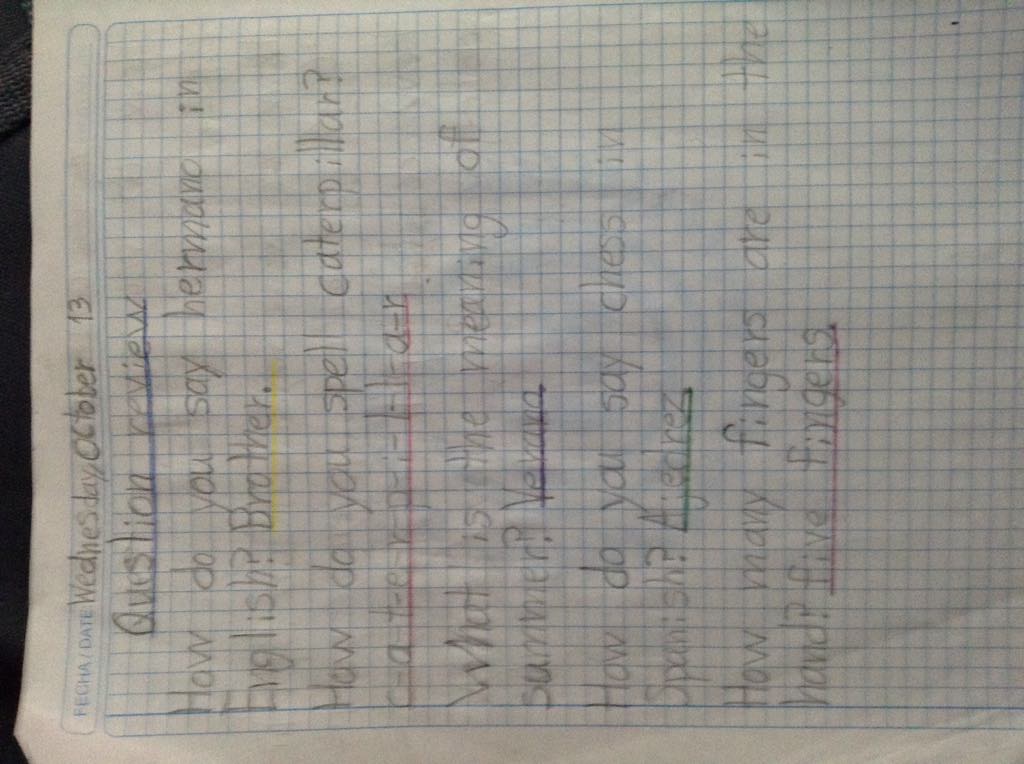 FECHA/DATE Wednesday, October 13
Quistion review
How do you say hermano in
English? Brother.
How do you spell caterpillar?
c-a-t-e-r-p-i-l-l-a-r
What is the meaning off
summer? Verano
How do you say chess in
Spanish? Ajedrez
How many fingers are in the
hand? five fingers